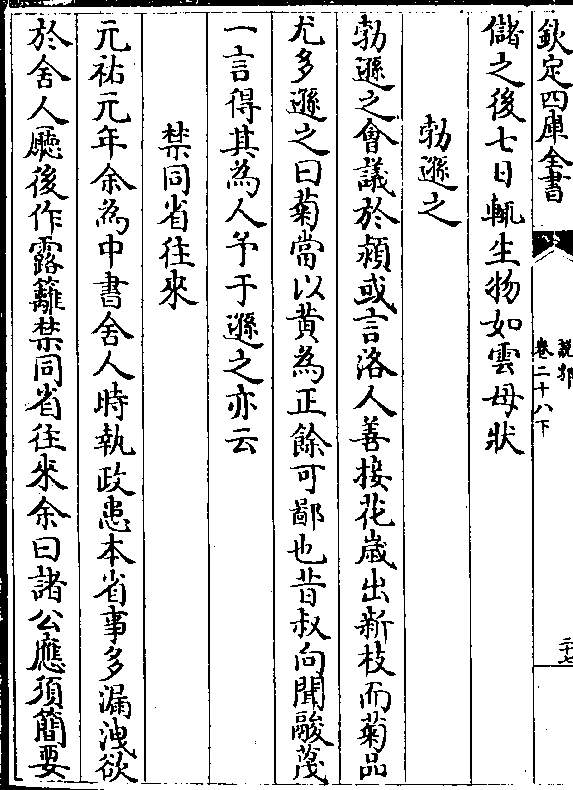 欽定四庫全書
說郛
卷二十八下
二十七
儲之後七日輒生物如雲母狀
勃遜之
勃遜之會議於潁或言洛人善接花歲出新枝而菊品
尤多遜之曰菊當以黃為正餘可鄙也昔叔向聞鬷蔑
一言得其為人予于遜之亦云
禁同省往來
元祐元年余為中書舍人時執政患本省事多漏洩欲
於舍人廳後作露籬禁同省往來余曰諸公應須簡要